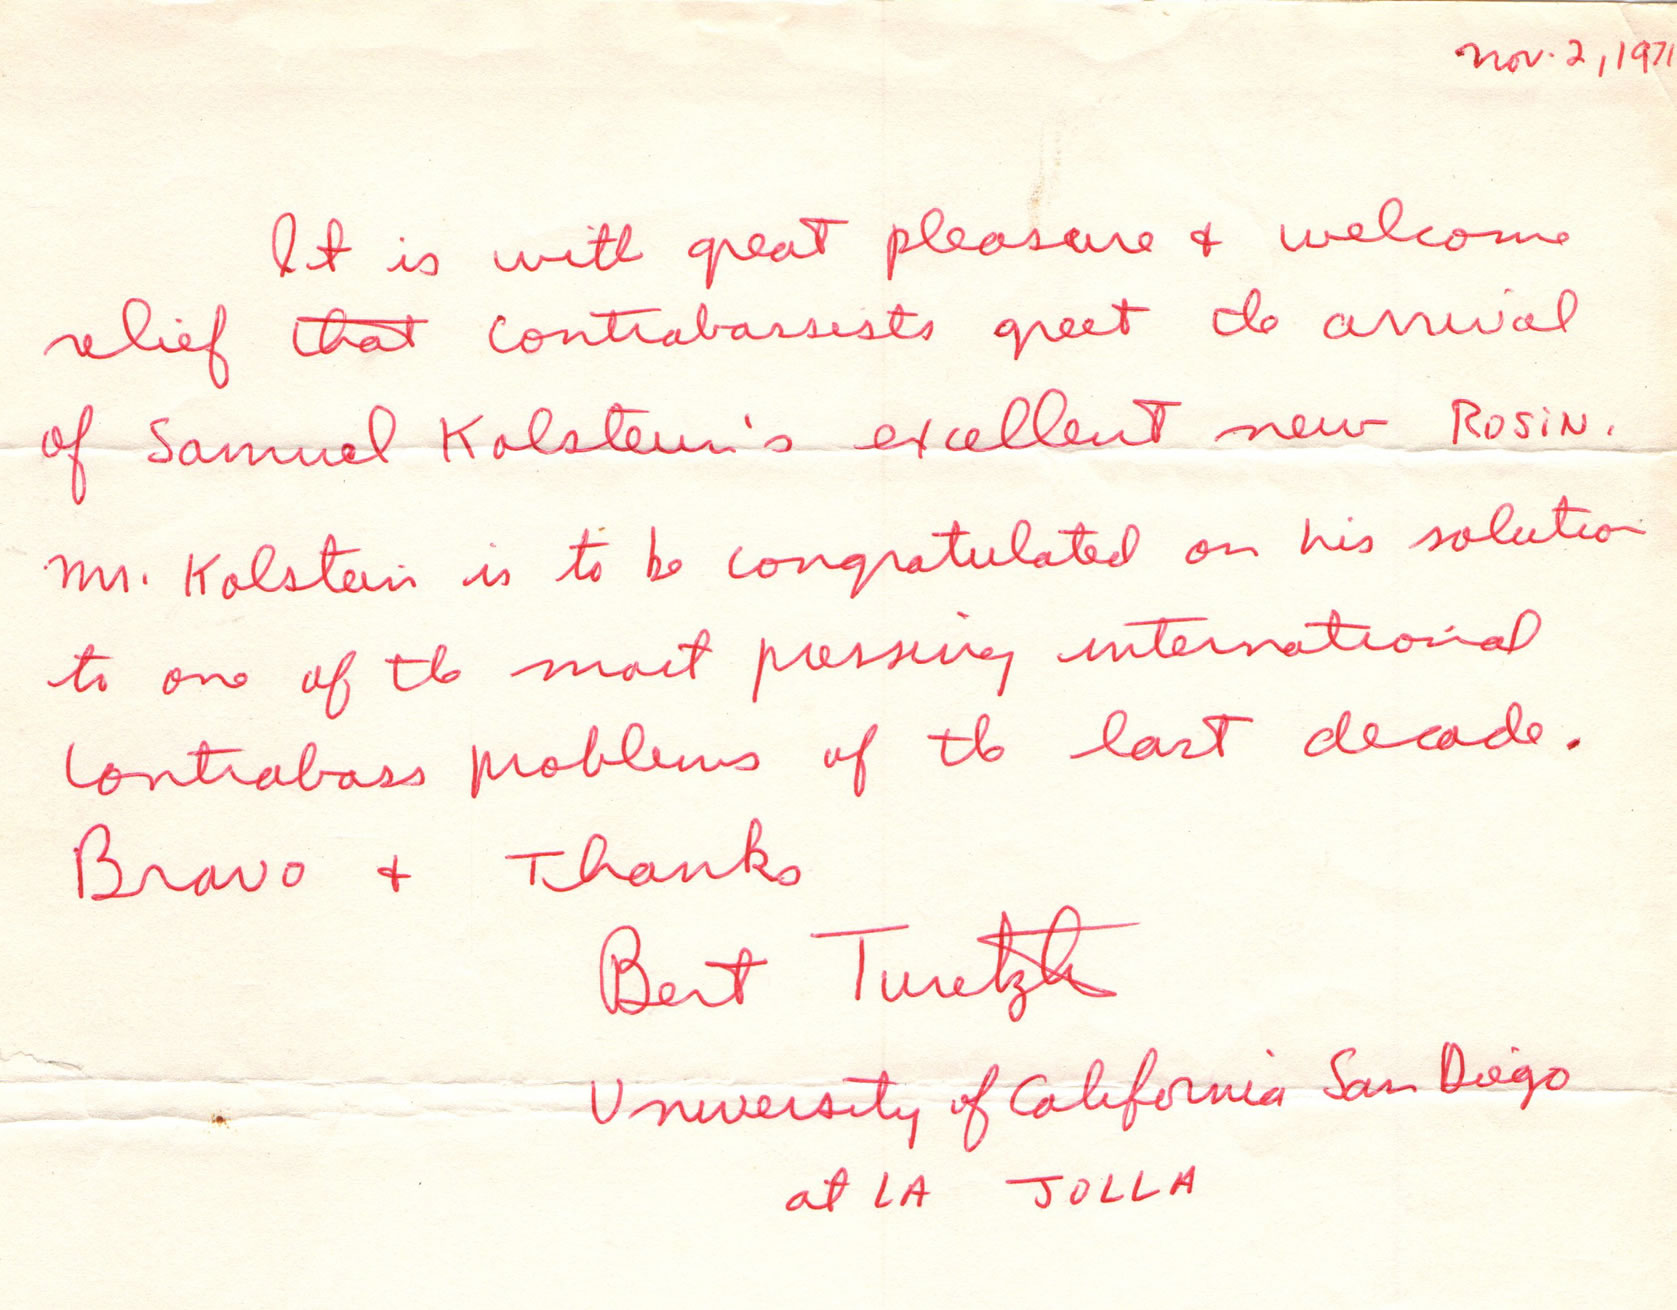 Nov. 2, 1971
It is with great pleasure & welcome
relief that contrabassists greet the arrival
of Samuel Kolstein's excellent new ROSIN.
Mr. Kolstein is to be congratulated on his solution
to one of the most pressing international
contrabass problems of the last decade.
Bravo & Thanks
Bert Turetzky
University of California San Diego
at LA JOLLA